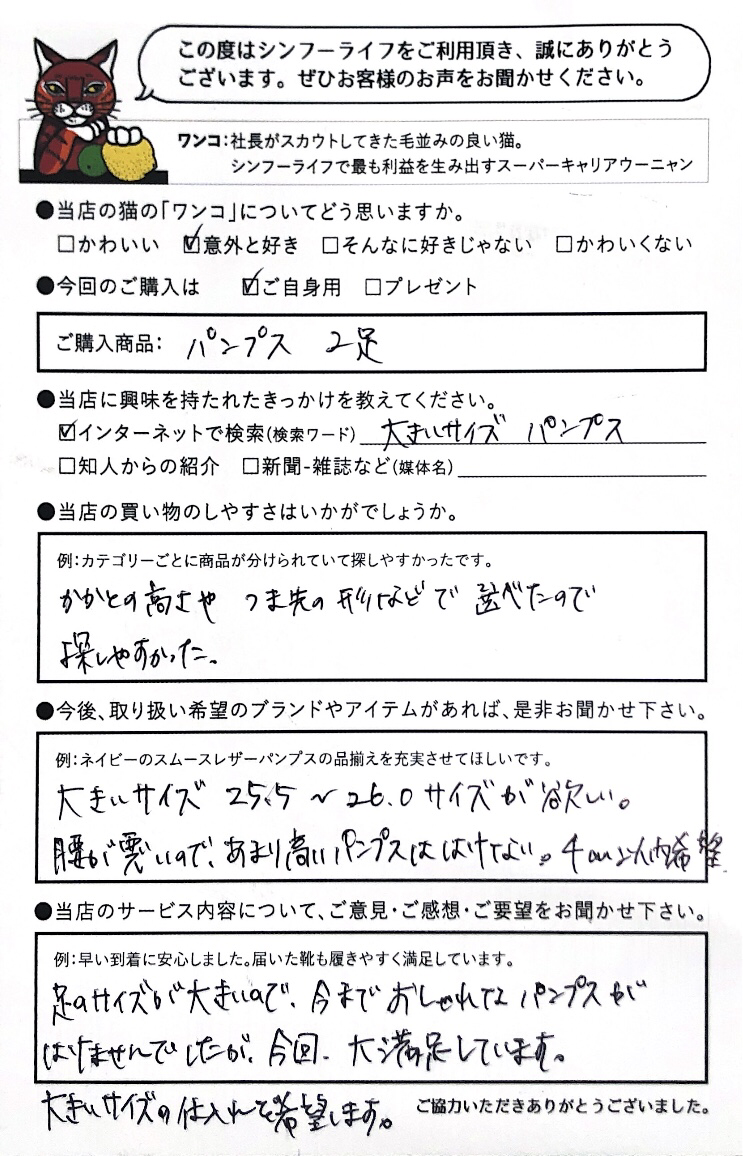 この度はシンフーライフをご利用頂き、誠にありがとう
ございます。ぜひお客様のお声をお聞かせください。
ワンコ：社長がスカウトしてきた毛並みの良い猫。
シンフーライフで最も利益を生み出すスーパーキャリアウーニャン
●当店の猫の「ワンコ」についてどう思いますか。
□かわいい ☑意外と好き □そんなに好きじゃない □かわいくない
●今回のご購入は ☑ご自身用 □プレゼント
ご購入商品： パンプス 2足
●当店に興味を持たれたきっかけを教えてください。
☑インターネットで検索(検索ワード) 大きいサイズ パンプス
□知人からの紹介 □新聞-雑誌など(媒体名)
●当店の買い物のしやすさはいかがでしょうか。
例：カテゴリーごとに商品が分けられていて探しやすかったです。
かかとの高さや つま先の形などで選べたので
探しやすかった。
●今後、取り扱い希望のブランドやアイテムがあれば、是非お聞かせ下さい。
例：ネイビーのスムースレザーパンプスの品揃えを充実させてほしいです。
大きいサイズ 25.5～26.0サイズが欲しい。
腰が悪いので、あまり高いパンプスははけない。4cm以内希望
●当店のサービス内容について、ご意見・ご感想・ご要望をお聞かせ下さい。
例：早い到着に安心しました。届いた靴も履きやすく満足しています。
足のサイズが大きいので、今までおしゃれなパンプスが
はけませんでしたが、今回、大満足しています。
大きいサイズの仕入れを希望します。
ご協力いただきありがとうございました。